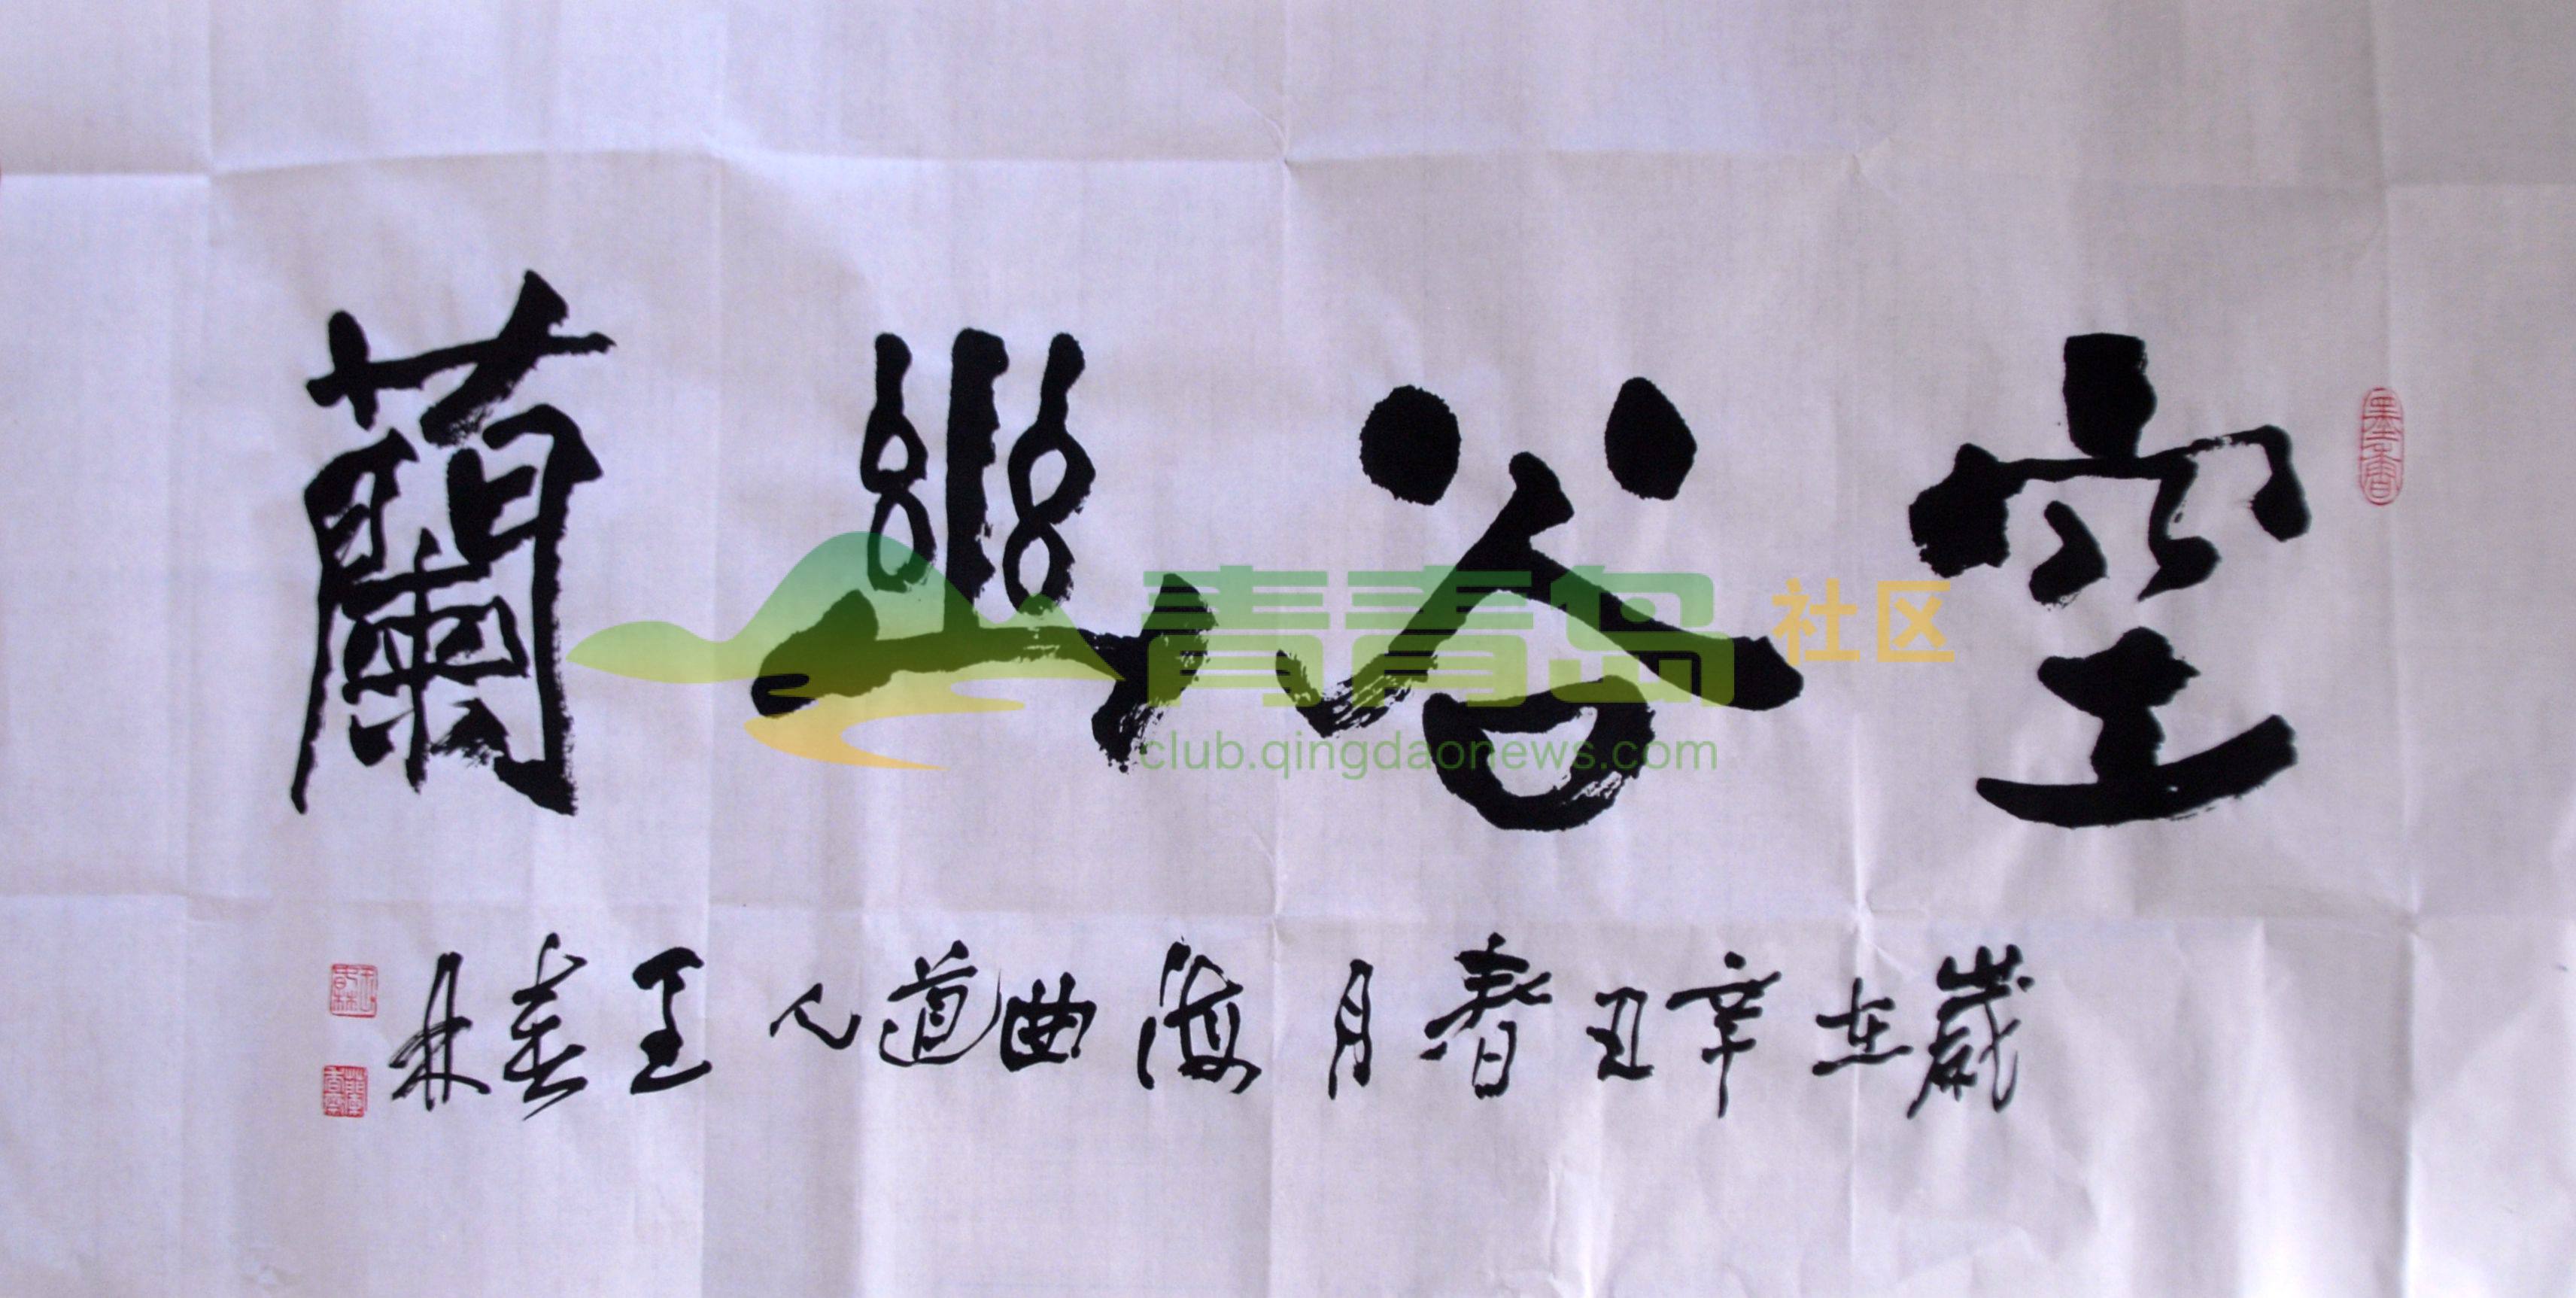 空谷幽蘭
歲在辛丑春月海曲道人王春林
墨香
青青岛社区
club.qingdaonews.com